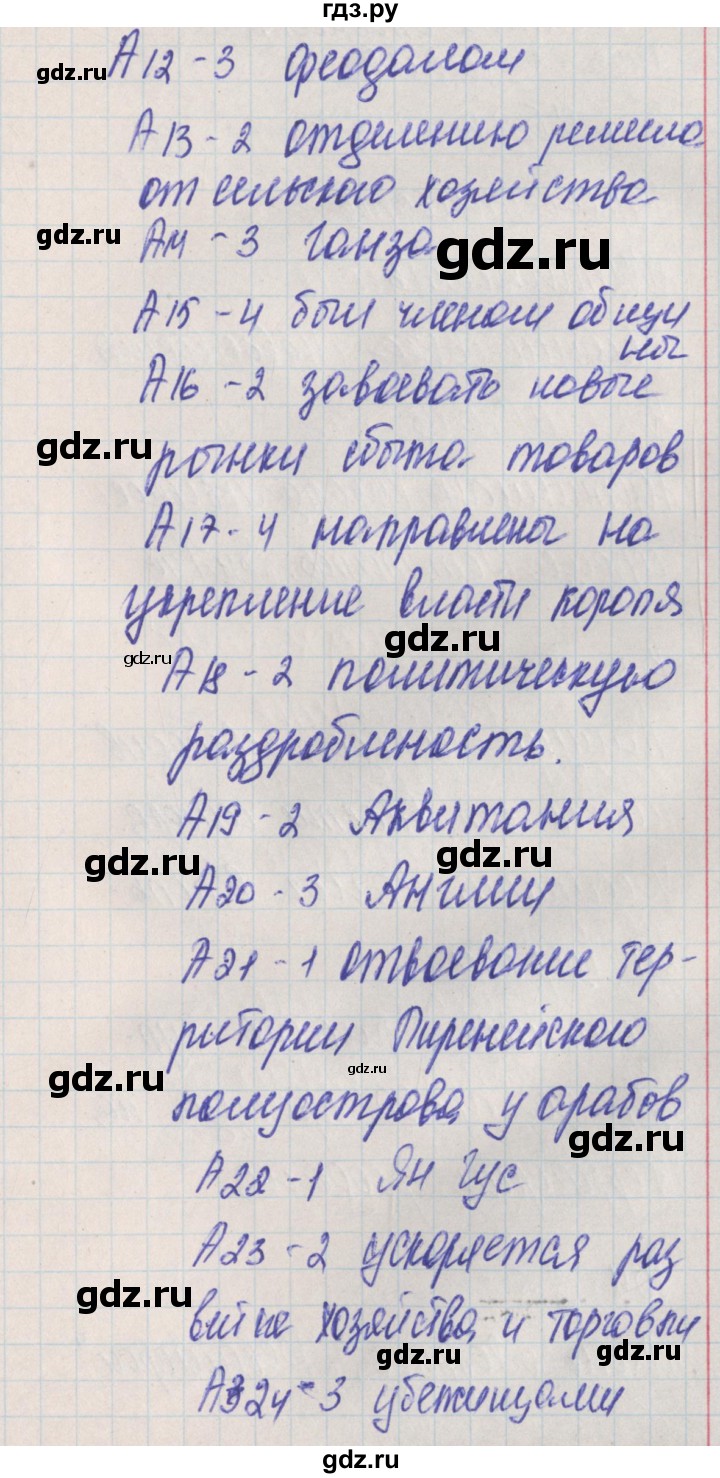 гдз.ру
gdz.ru
А12 - 3 феодалом
А13 - 2 отделению ремесла
от сельского хозяйства
gdz.ru
А14 - 3 Ганза
gdz.ru
А15 - 4 был членом общи
ны
А16 - 2 завоевать новые
gdz.ru
рынки сбыта товаров
А17 - 4 направлены на
укрепление власти короля
gdz.ru
gdz.ru
А18 - 2 политическую
раздробленность.
А19 - 2 Аквитания
gdz.ru
gdz.ru
А20 - 3 Англии
А21 - 1 отвоевание тер-
ритории Пиренейского
gdz.ru
gdz.ru
полуострова у арабов
gdz.ru
А22 - 1 Ян Гус
А23 - 2 ускоряется раз
gdz.ru
витие хозяйства и торговли
gdz.ru
gdz.ru
А24 - 3 убежищами
gdz.ru